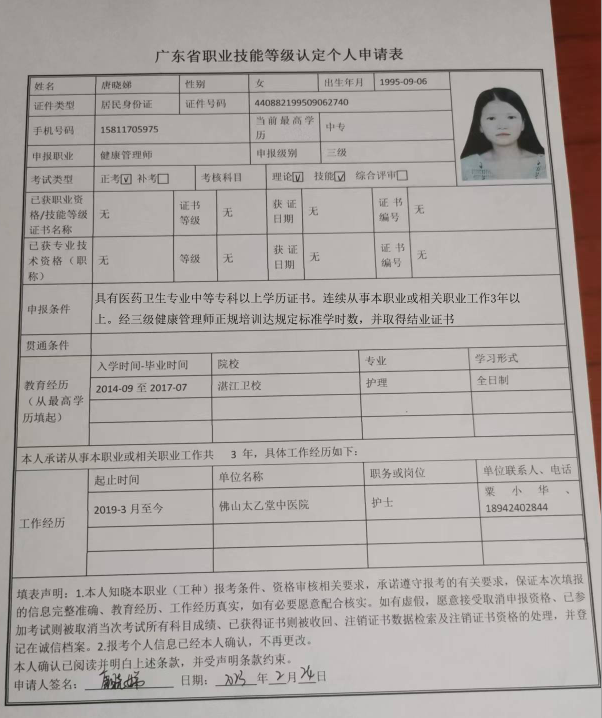 广东省职业技能等级认定个人申请表
姓名 唐晓娣 性别 女 出生年月 1995-09-06
证件类型 居民身份证 证件号码 440882199509062740
手机号码 15811705975 当前最高学历 中专
申报职业 健康管理师 申报级别 三级
考试类型 正考☑ 补考☐ 考核科目 理论☑ 技能☑ 综合评审☐
已获职业资格/技能等级证书名称 无 证书等级 无 获证日期 无 证书编号 无
已获专业技术资格(职称) 无 等级 无 获证日期 无 证书编号 无
申报条件 具有医药卫生专业中等专科以上学历证书。连续从事本职业或相关职业工作3年以
上。经三级健康管理师正规培训达规定标准学时数，并取得结业证书
贯通条件
教育经历（从最高学历填起） 入学时间-毕业时间 院校 专业 学习形式
2014-09 至 2017-07 湛江卫校 护理 全日制
本人承诺从事本职业或相关职业工作共 3 年，具体工作经历如下：
工作经历 起止时间 单位名称 职务或岗位 单位联系人、电话
2019-3 月至今 佛山太乙堂中医院 护士 粟小华、18942402844
填表声明：1.本人知晓本职业（工种）报考条件、资格审核相关要求，承诺遵守报考的有关要求，保证本次填报
的信息完整准确、教育经历、工作经历真实，如有必要愿意配合核实。如有虚假，愿意接受取消申报资格、已参
加考试则被取消当次考试所有科目成绩、已获得证书则被收回、注销证书数据检索及注销证书资格的处理，并登
记在诚信档案。2.报考个人信息已经本人确认，不再更改。
本人确认已阅读并明白上述条款，并受声明条款约束。
申请人签名：唐晓娣 日期：2023 年 2 月 24 日